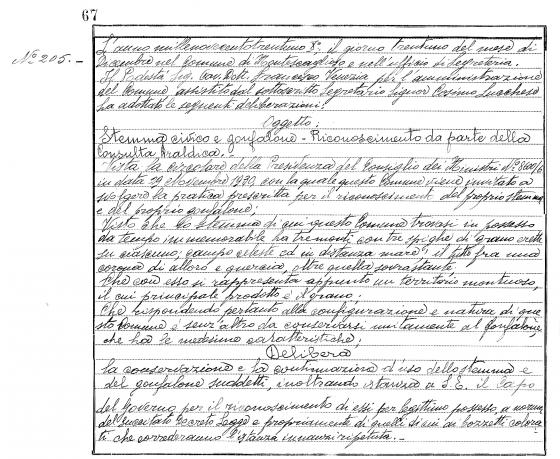 67
Nº 205.-
L'anno millenovecentotrentuno 8º, il giorno trentuno del mese di
Dicembre nel Comune di Montescaglioso e nell'ufficio di Segreteria.
Il Podestà Sig. Cav. Dott. Francesco Venezia per l'amministrazione
del Comune, assistito dal sottoscritto Segretario Signor Cosimo Lucchese
ha adottato le seguenti deliberazioni:
Oggetto:
Stemma civico e gonfalone - Riconoscimento da parte della
Consulta Araldica. -
Vista la circolare della Presidenza del Consiglio dei Ministri Nº 8600/6
in data 29 Novembre 1930, con la quale questo Comune viene invitato a
svolgere la pratica prescritta per il riconoscimento del proprio stemma
e del proprio gonfalone;
Visto che lo stemma di cui questo Comune trovasi in possesso
da tempo immemorabile ha tre monti con tre spighe di grano erette
su ciascuno; campo celeste ed in distanza mare; il tutto fra una
corona di alloro e quercia, oltre quella sovrastante;
Che con esso si rappresenta appunto un territorio montuoso,
il cui principale prodotto è il grano;
Che rispondendo pertanto alla configurazione e natura di que
sto Comune è senz'altro da conservarsi unitamente al gonfalone,
che ha le medesime caratteristiche;
Delibera
la conservazione e la continuazione d'uso dello stemma e
del gonfalone suddetti, inoltrando istanza a S.E. il Capo
del Governo per il riconoscimento di essi per legittimo possesso, a norma
del succitato Decreto Legge e propriamente di quelli di cui ai bozzetti colora-
ti che correderanno l'istanza innanzi ripetuta. -